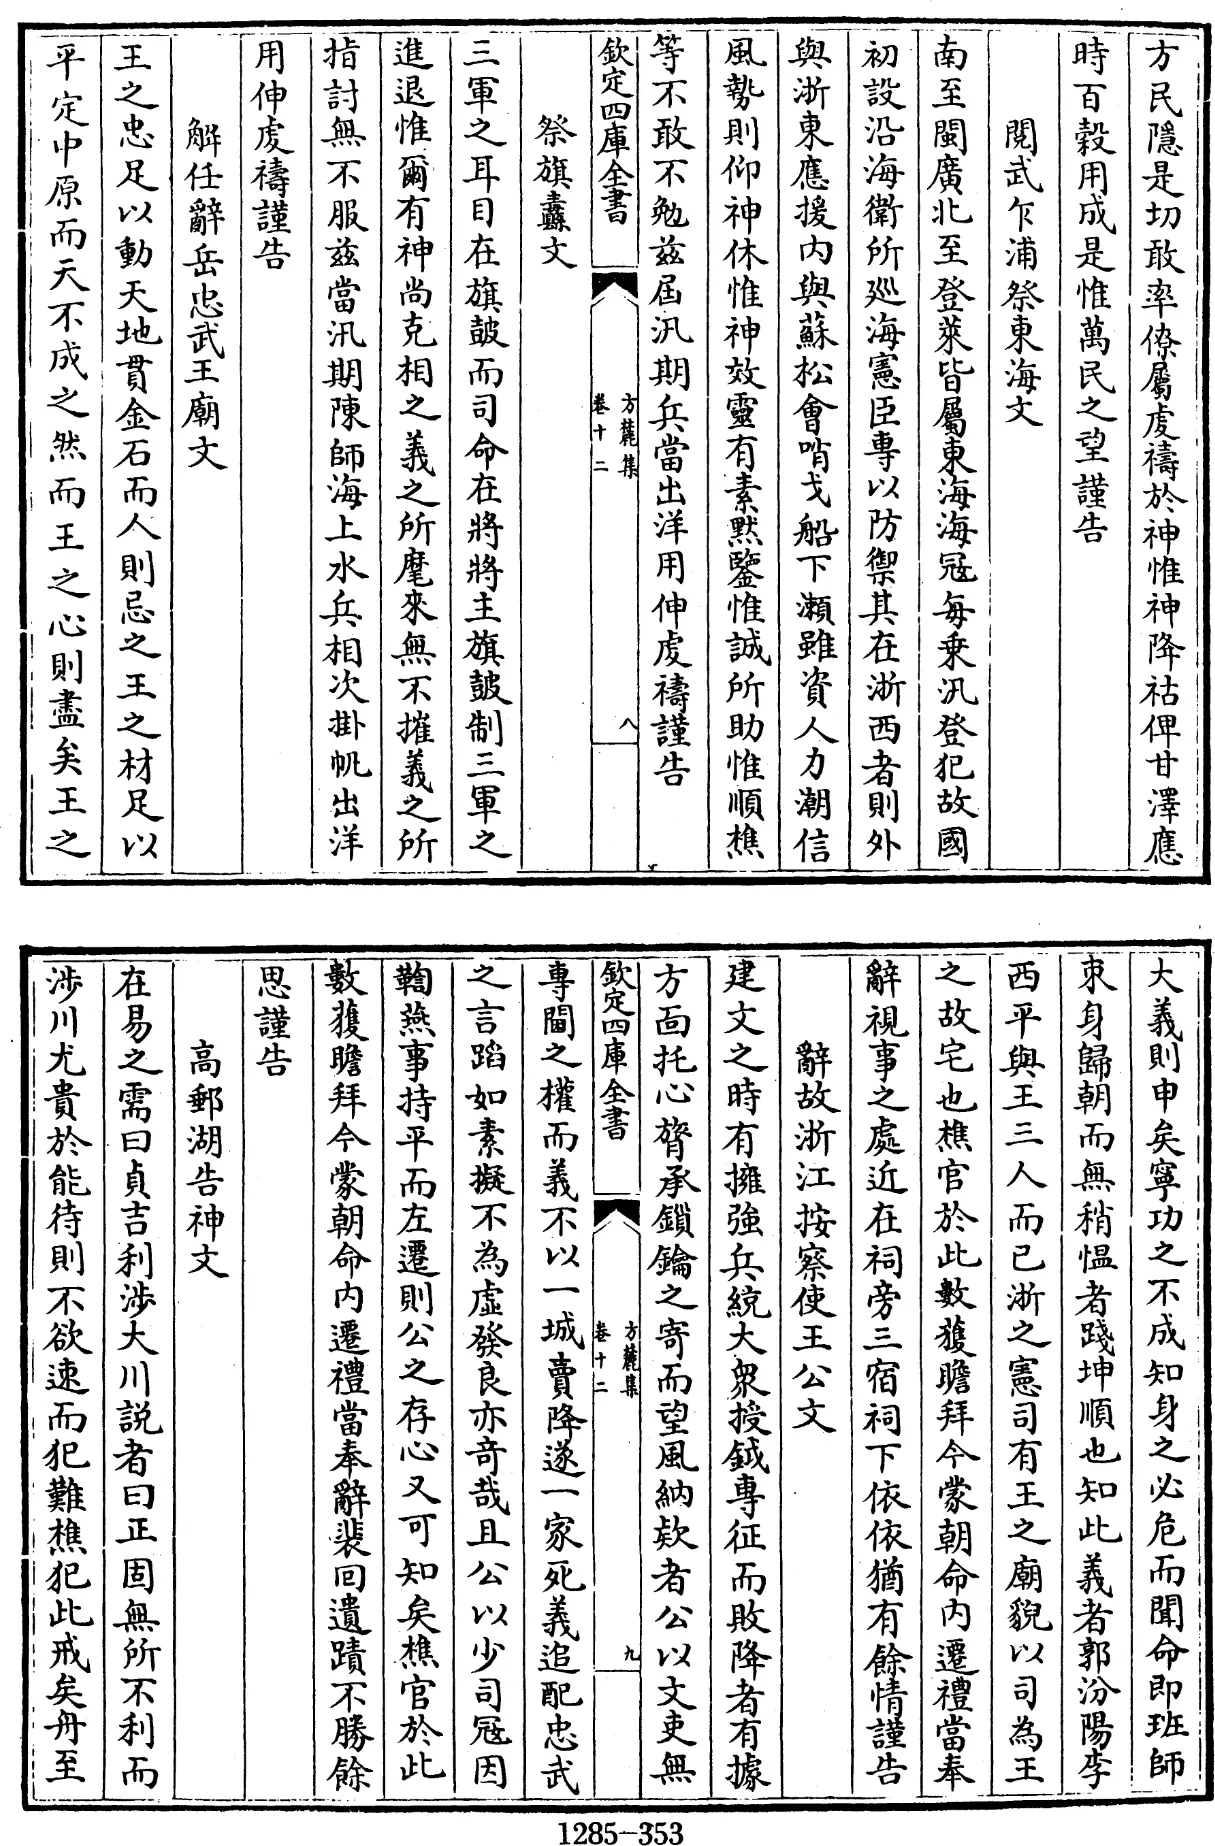 方民隱是切敢率僚屬虔禱於神惟神降祜俾甘澤應
時百穀用成是惟萬民之望謹告
閱武乍浦祭東海文
南至閩廣北至登萊皆屬東海海冦每乗汛登犯故國
初設沿海衛所廵海憲臣專以防禦其在浙西者則外
與浙東應援内與蘇松會哨戈船下瀨雖資人力潮信
風勢則仰神休惟神效靈有素黙鑒惟誠所助惟順樵
等不敢不勉兹屆汛期兵當出洋用伸虔禱謹告
欽定四庫全書
方麓集
卷十二
八
祭旗纛文
三軍之耳目在旗皷而司命在將將主旗皷制三軍之
進退惟爾有神尚克相之義之所麾來無不摧義之所
指討無不服兹當汛期陳師海上水兵相次掛帆出洋
用伸虔禱謹告
解任辭岳忠武王廟文
王之忠足以動天地貫金石而人則忌之王之材足以
平定中原而天不成之然而王之心則盡矣王之
大義則申矣寧功之不成知身之必危而聞命即班師
束身歸朝而無稍愠者踐坤順也知此義者郭汾陽李
西平與王三人而已浙之憲司有王之廟貌以司為王
之故宅也樵官於此數獲瞻拜今蒙朝命内遷禮當奉
辭視事之處近在祠旁三宿祠下依依猶有餘情謹告
辭故浙江按察使王公文
建文之時有擁強兵統大衆授鉞專征而敗降者有據
方面托心膂承鎖鑰之寄而望風納欵者公以文吏無
欽定四庫全書
方麓集
卷十二
九
專閫之權而義不以一城賣降遂一家死義追配忠武
之言蹈如素擬不為虛發良亦竒哉且公以少司冦因
鞫燕事持平而左遷則公之存心又可知矣樵官於此
數獲瞻拜今蒙朝命内遷禮當奉辭裴回遺蹟不勝餘
思謹告
高郵湖告神文
在易之需曰貞吉利涉大川説者曰正固無所不利而
涉川尤貴於能待則不欲速而犯難樵犯此戒矣舟至
1285-353